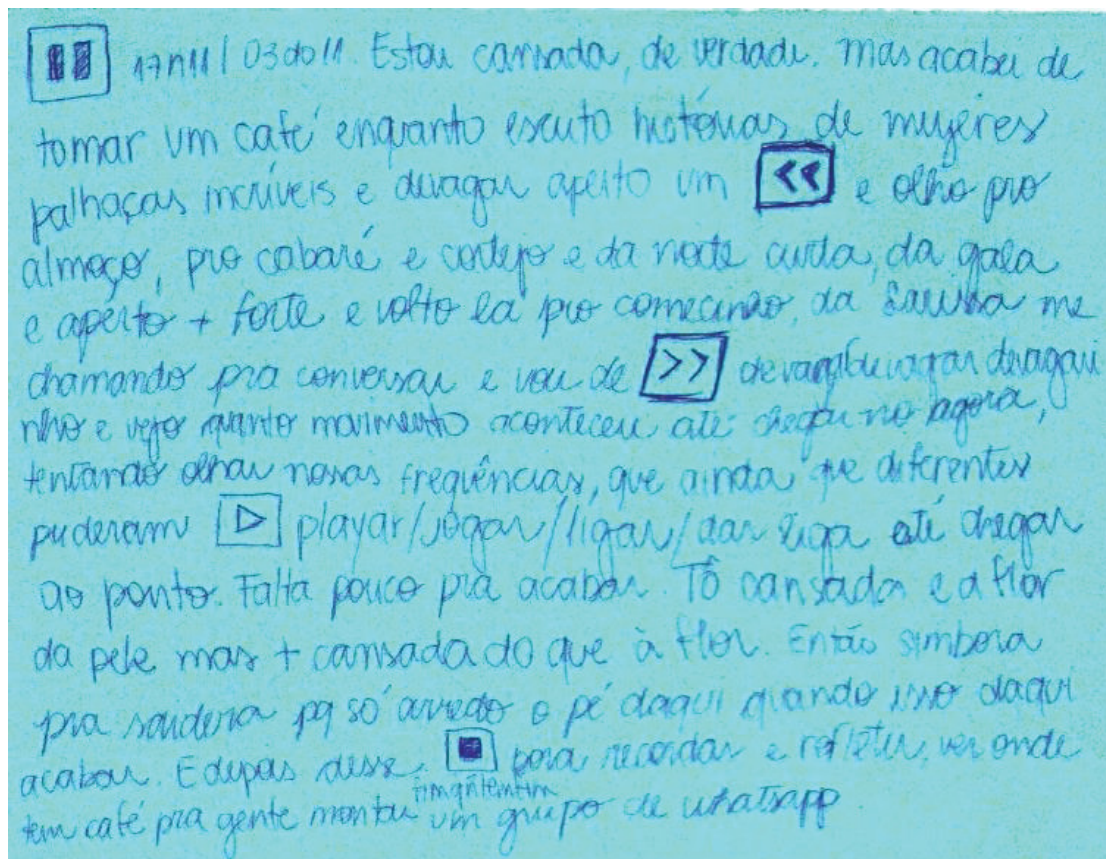 17h11 / 03do11. Estou cansada, de verdade. mas acabei de
tomar um café enquanto escuto histórias de mujeres
palhaças incríveis e devagar aperto um << e olho pro
almoço, pro cabaré e cortejo e da noite curta, da gala
e aperto + forte e volto lá pro comecinho, da me
chamando pra conversar e vou de >> devagar devagari
nho e vejo quanto movimento aconteceu até chegar no agora,
tentando olhar nossas frequências, que ainda que diferentes
puderam ▷ playar/jogar/ligar/dar liga até chegar
ao ponto. Falta pouco pra acabar. Tô cansada e a flor
da pele mas + cansada do que à flor. Então simbora
pra saidera pq só arredo o pé daqui quando isso daqui
acabar. E depois desse ■ para recordar e refletir, ver onde
tem café pra gente montar um grupo de whatsapp.